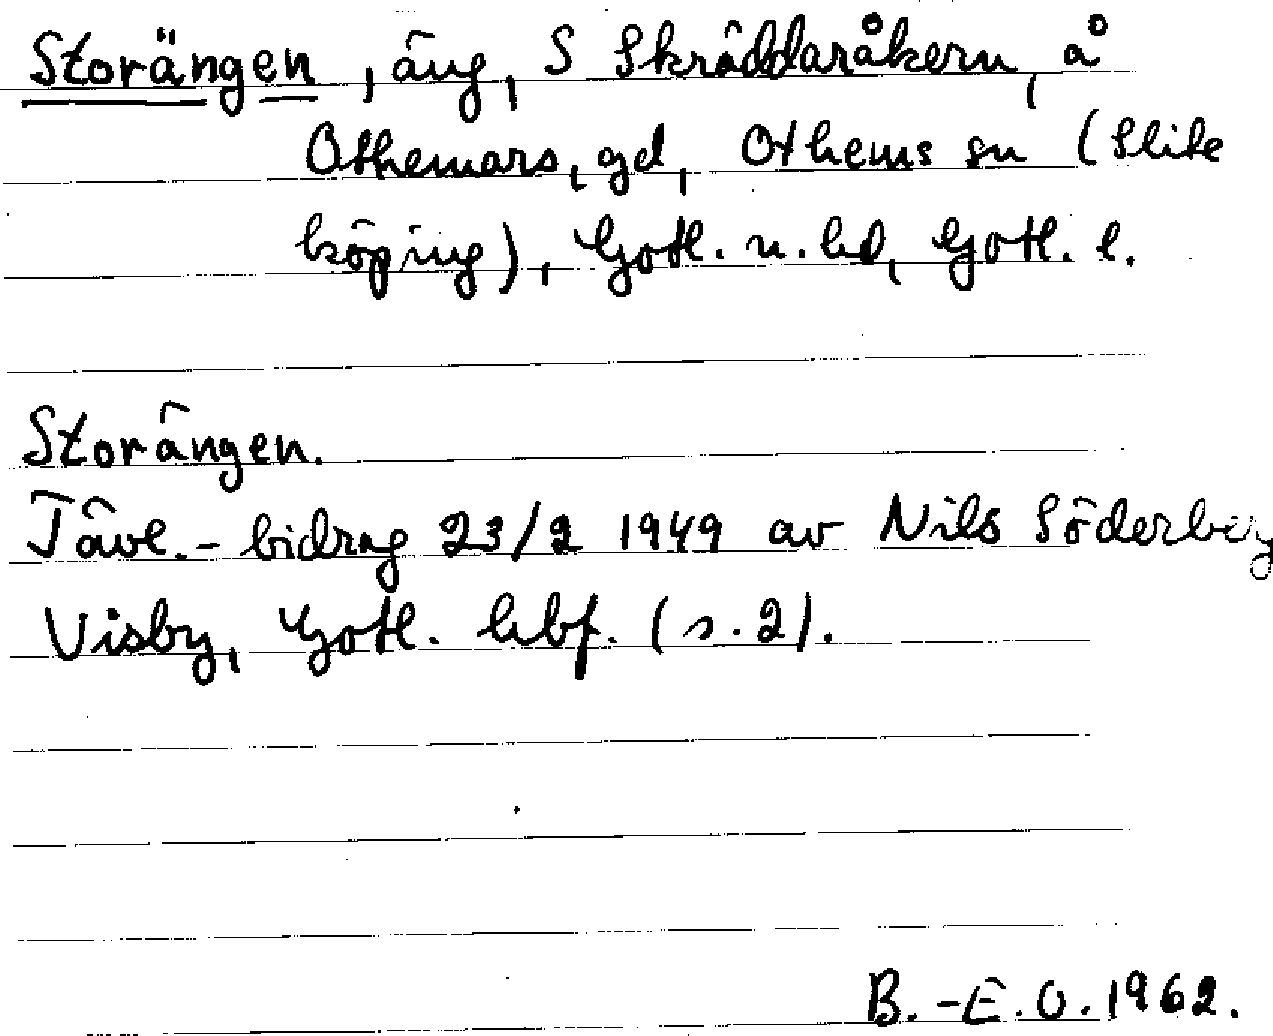 Storängen, äng, S Skräddaråkern, å
Othemars, gd, Othems sn (Slite
köping), Gotl. n. hd, Gotl. l.
Storängen.
Tävl.-bidrag 23/2 1949 av Nils Söderberg
Visby, Gotl. hbf. (s. 2).
B.-E. O. 1962.